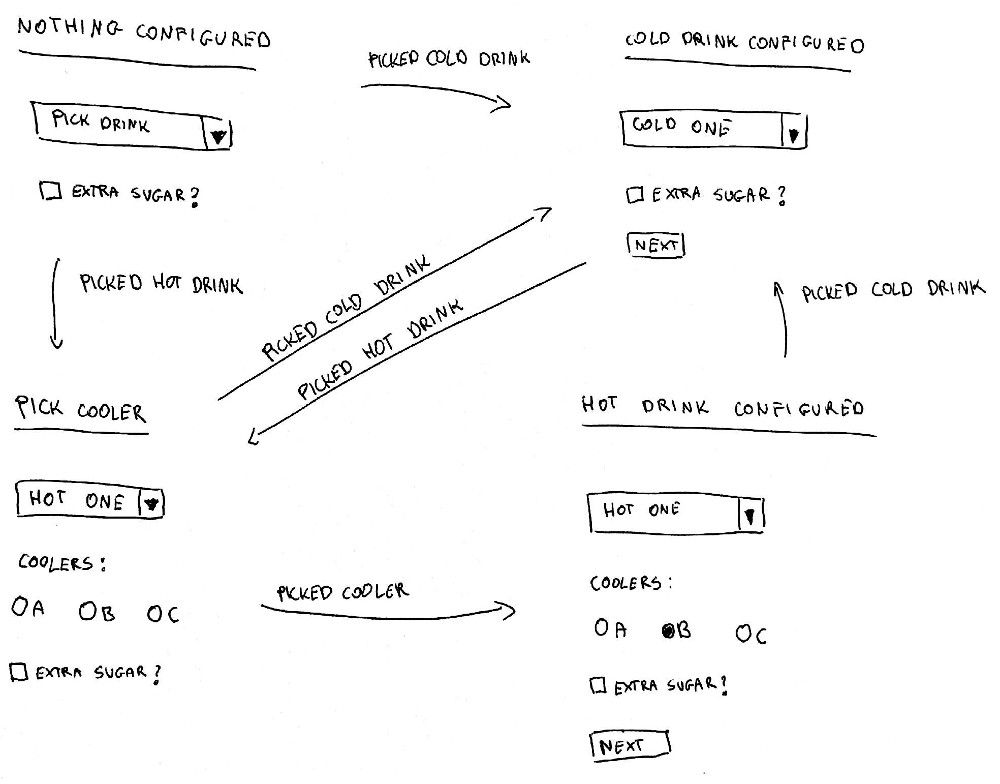 NOTHING CONFIGURED
PICK DRINK
EXTRA SUGAR?
PICKED COLD DRINK
COLD DRINK CONFIGURED
COLD ONE
EXTRA SUGAR?
NEXT
PICKED HOT DRINK
PICKED COLD DRINK
PICKED HOT DRINK
PICKED COLD DRINK
PICK COOLER
HOT ONE
COOLERS:
A B C
EXTRA SUGAR?
PICKED COOLER
HOT DRINK CONFIGURED
HOT ONE
COOLERS:
A B C
EXTRA SUGAR?
NEXT